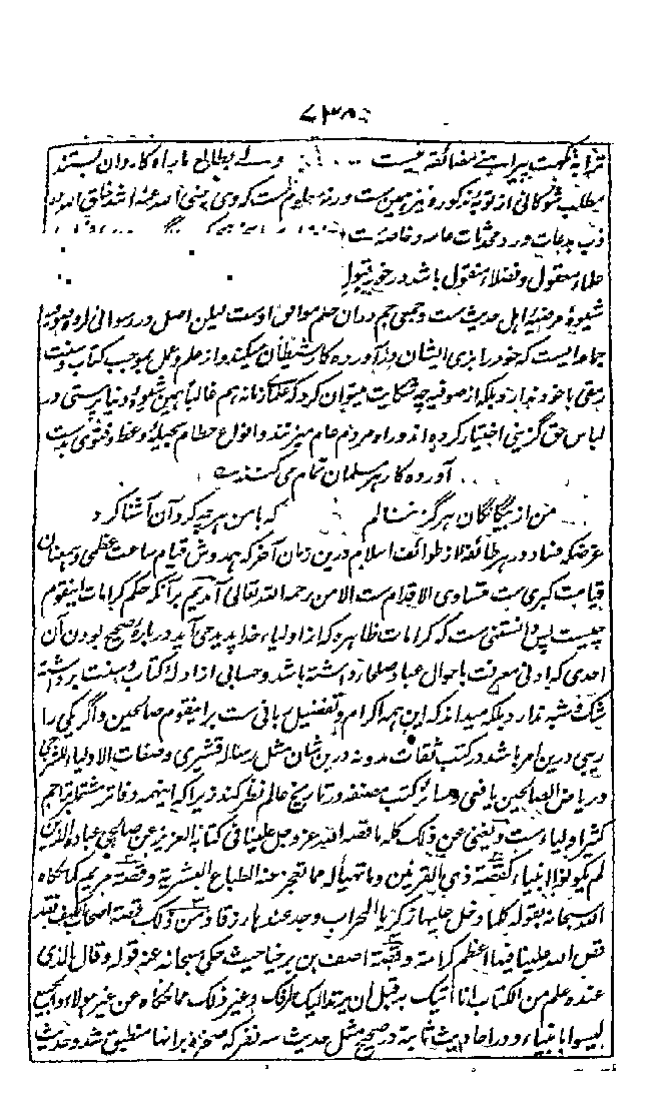 ۷۳۵
ترا به نکهت پیراهنی مضائقه نیست ... ولے بطالع ما راه کاروان بستند
مطلب شوکانی از توبهٔ مذکوره نیز همین ست ورنه معلوم ست که وی رضی الله عنه
ذب بدعات و رد محدثات عامه و خاصه ست
علماء منقول و فضلاء منقول باشد در خور قبول
شیوهٔ مرضیهٔ اهل حدیث ست و جمعی جم دران علم موافق اوست لیکن اصل در رسوائی
جماعه ایست که خود را بزی ایشان درآورده کار شیطان میکنند و از علم و عمل بموجب کتاب و سنت
رمقی با خود ندارند و بلکه از صوفیه چه شکایت میتوان کرد که علماء زمانه هم غالباً همین شیوهٔ دنیا پرستی در
لباس حق گزینی اختیار کرده اند و راه مردم عام میزنند و انواع حطام بحیلهٔ وعظ و فتوی بدست
آورده کار هر مسلمان تمام می کنند
من از بیگانگان هرگز ننالم که با من هرچه کرد آن آشنا کرد
غرضکه فساد در هر طائفه از طوائف اسلام درین زمان آخر که همدوش قیام ساعت عظمی و همعنان
قیامت کبری ست متساوی الاقدام ست الا من رحمه الله تعالی آمدیم بر آنکه حکم کرامات اینقوم
چیست پس دانستنی ست که کرامات ظاهره که از اولیاء خدا پدید می آید دربارهٔ صحیح بودن آن
احدی که ادنی معرفت باحوال عباد صلحاء داشته باشد و حسابی از ادلهٔ کتاب و سنت برداشته
شک و شبه ندارد بلکه میداند که این همه اکرام و تفضیل ربانی ست برا ینقوم صالحین و اگر یکی را
ریبی درین امر باشد در کتب ثقات مدونه درین شان مثل رساله قشیری و صفات الاولیاء
و ریاض الصالحین یافعی و سائر کتب مصنفه در تاریخ عالم نظر کند زیرا که اینهمه دفاتر مشتمل بتراجم
کثیر اولیاء ست و یغنی عن ذلک کله ما قصه الله عز و جل علینا فی کتابه العزیز عن صالحی عباده الذین
لم یکونوا انبیاء کقصة ذی القرنین وما تهیأ له مما تعجز عنه الطباع البشریة و قصة مریم کما حکاه
الله سبحانه بقوله کلما دخل علیها زکریا المحراب وجد عندها رزقا و من ذلک قصة اصحاب الکهف فقد
قص الله علینا فیها اعظم کرامة و قصة آصف بن برخیا حیث حکی سبحانه عنه قوله و قال الذی
عنده علم من الکتاب انا آتیک به قبل ان یرتد الیک طرفک و غیر ذلک مما حکاه عن غیر هؤلاء و الجمیع
لیسوا بانبیاء و در احادیث ثابته در صحیح مثل حدیث سه نفر که صخره برانها منطبق شد و حدیث